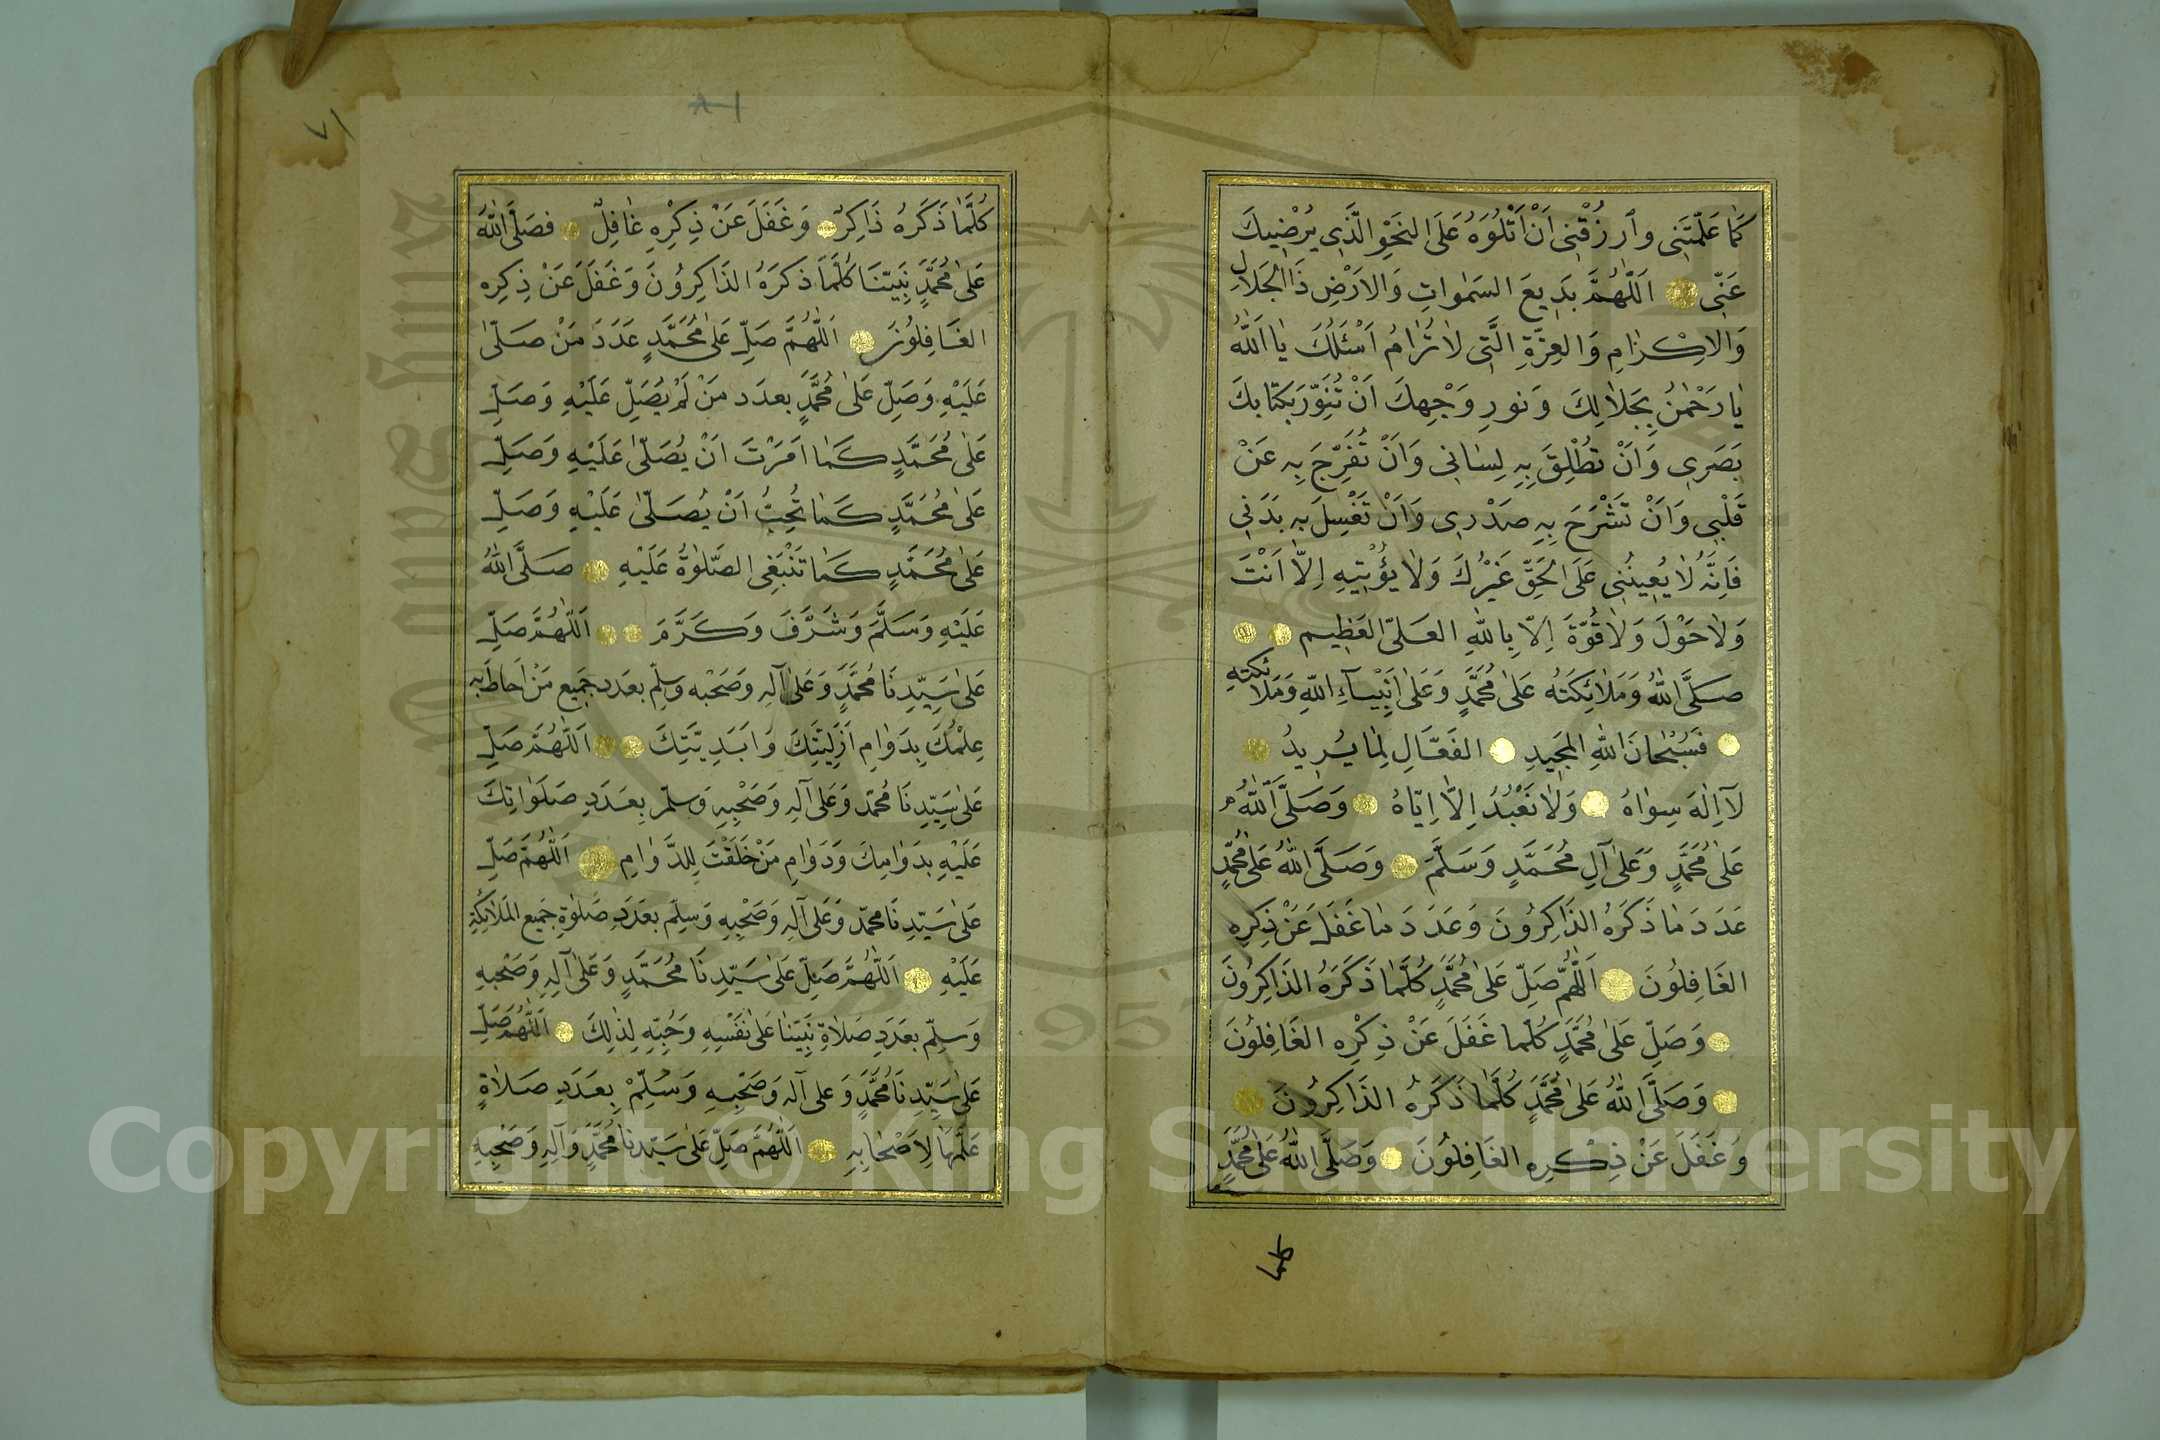 كَمَا عَلَّمْتَنِي وَارْزُقْنِي اَنْ اَتْلُوَهُ عَلَى النَحْوِ الَّذِي يُرْضِيكَ
عَنِّي اَللّٰهُمَّ بَدِيعَ السَمٰوَاتِ وَالاَرْضِ ذَا الْجَلَالِ
وَالاِكْرَامِ وَالعِزَّةِ الَّتِي لَا تُرَامُ اَسْئَلُكَ يَا اَللّٰهُ
يَا رَحْمٰنُ بِجَلَالِكَ وَنُورِ وَجْهِكَ اَنْ تُنَوِّرَ بِكِتَابِكَ
بَصَرِي وَاَنْ تُطْلِقَ بِهِ لِسَانِي وَاَنْ تُفَرِّجَ بِهِ عَنْ
قَلْبِي وَاَنْ تَشْرَحَ بِهِ صَدْرِي وَاَنْ تَغْسِلَ بِهِ بَدَنِي
فَاِنَّهُ لَا يُعِينُنِي عَلَى الحَقِّ غَيْرُكَ وَلَا يُؤْتِيهِ اِلَّا اَنْتَ
وَلَا حَوْلَ وَلَا قُوَّةَ اِلَّا بِاللهِ العَلِيِّ العَظِيمِ
صَلَّى اللهُ وَمَلَائِكَتُهُ عَلَى مُحَمَّدٍ وَعَلَى اَنْبِيَآءِ اللهِ وَمَلَائِكَتِهِ
فَسُبْحَانَ اللهِ المَجِيدِ الفَعَّالِ لِمَا يُرِيدُ
لَآ اِلٰهَ سِوَاهُ وَلَا نَعْبُدُ اِلَّا اِيَّاهُ وَصَلَّى اللهُ
عَلَى مُحَمَّدٍ وَعَلَى آلِ مُحَمَّدٍ وَسَلَّمَ وَصَلَّى اللهُ عَلَى مُحَمَّدٍ
عَدَدَ مَا ذَكَرَهُ الذَاكِرُونَ وَعَدَدَ مَا غَفَلَ عَنْ ذِكْرِهِ
الغَافِلُونَ اَللّٰهُمَّ صَلِّ عَلَى مُحَمَّدٍ كُلَّمَا ذَكَرَهُ الذَاكِرُونَ
وَصَلِّ عَلَى مُحَمَّدٍ كُلَّمَا غَفَلَ عَنْ ذِكْرِهِ الغَافِلُونَ
وَصَلَّى اللهُ عَلَى مُحَمَّدٍ كُلَّمَا ذَكَرَهُ الذَاكِرُونَ
وَغَفَلَ عَنْ ذِكْرِهِ الغَافِلُونَ وَصَلَّى اللهُ عَلَى مُحَمَّدٍ
٨١
٧١
كُلَّمَا ذَكَرَهُ ذَاكِرٌ وَغَفَلَ عَنْ ذِكْرِهِ غَافِلٌ فصَلَّى اللهُ
عَلَى مُحَمَّدٍ نَبِيِّنَا كُلَّمَا ذَكَرَهُ الذَاكِرُونَ وَغَفَلَ عَنْ ذِكْرِهِ
الغَافِلُونَ اَللّٰهُمَّ صَلِّ عَلَى مُحَمَّدٍ عَدَدَ مَنْ صَلَّى
عَلَيْهِ وَصَلِّ عَلَى مُحَمَّدٍ بعدَد مَنْ لَمْ يُصَلِّ عَلَيْهِ وَصَلِّ
عَلَى مُحَمَّدٍ كَمَا اَمَرْتَ اَنْ يُصَلَّى عَلَيْهِ وَصَلِّ
عَلَى مُحَمَّدٍ كَمَا تُحِبُّ اَنْ يُصَلَّى عَلَيْهِ وَصَلِّ
عَلَى مُحَمَّدٍ كَمَا تَنْبَغِي الصَّلوٰةُ عَلَيْهِ صَلَّى اللهُ
عَلَيْهِ وَسَلَّمَ وَشَرَّفَ وَكَرَّمَ اَللّٰهُمَّ صَلِّ
عَلَى سَيِّدِنَا مُحَمَّدٍ وَعَلَى آلِهِ وَصَحْبِه وَسَلِّم بعَدَد جَمِيعِ مَنْ اَحَاطَ بِهِ
عِلْمُكَ بِدَوَامِ اَزَلِيَّتِكَ وَاَبَدِيَّتِكَ اَللّٰهُمَّ صَلِّ
عَلَى سَيِّدِنَا مُحَمَّد وَعَلَى آلِهِ وَصَحْبِهِ وَسَلِّم بِعَدَدِ صَلَوَاتِكَ
عَلَيْهِ بِدَوَامِكَ وَدَوَامِ مَنْ خَلَقْتَ لِلدَّوَامِ اَللّٰهُمَّ صَلِّ
عَلَى سَيِّدِنَا مُحَمَّد وَعَلَى آلِهِ وَصَحْبِهِ وَسَلِّم بعَدَدِ صَلوٰةِ جَمِيعِ المَلَائِكَةِ
عَلَيْهِ اَللّٰهُمَّ صَلِّ عَلَى سَيِّدِنَا مُحَمَّدٍ وَعَلَى آلِهِ وَصَحْبِهِ
وَسَلِّم بعَدَدِ صَلَاةِ نَبِيِّنَا عَلَى نَفْسِهِ وَحُبِّهِ لِذٰلِكَ اَللّٰهُمَّ صَلِّ
عَلَى سَيِّدِنَا مُحَمَّدٍ وَعَلَى آلِهِ وَصَحْبِهِ وَسَلِّمْ بِعَدَدِ صَلَاةٍ
عَلَّمَهَا لِاَصْحَابِهِ اَللّٰهُمَّ صَلِّ عَلَى سَيِّدِنَا مُحَمَّدٍ وَآلِهِ وَصَحْبِهِ
Copyright © King Saud University